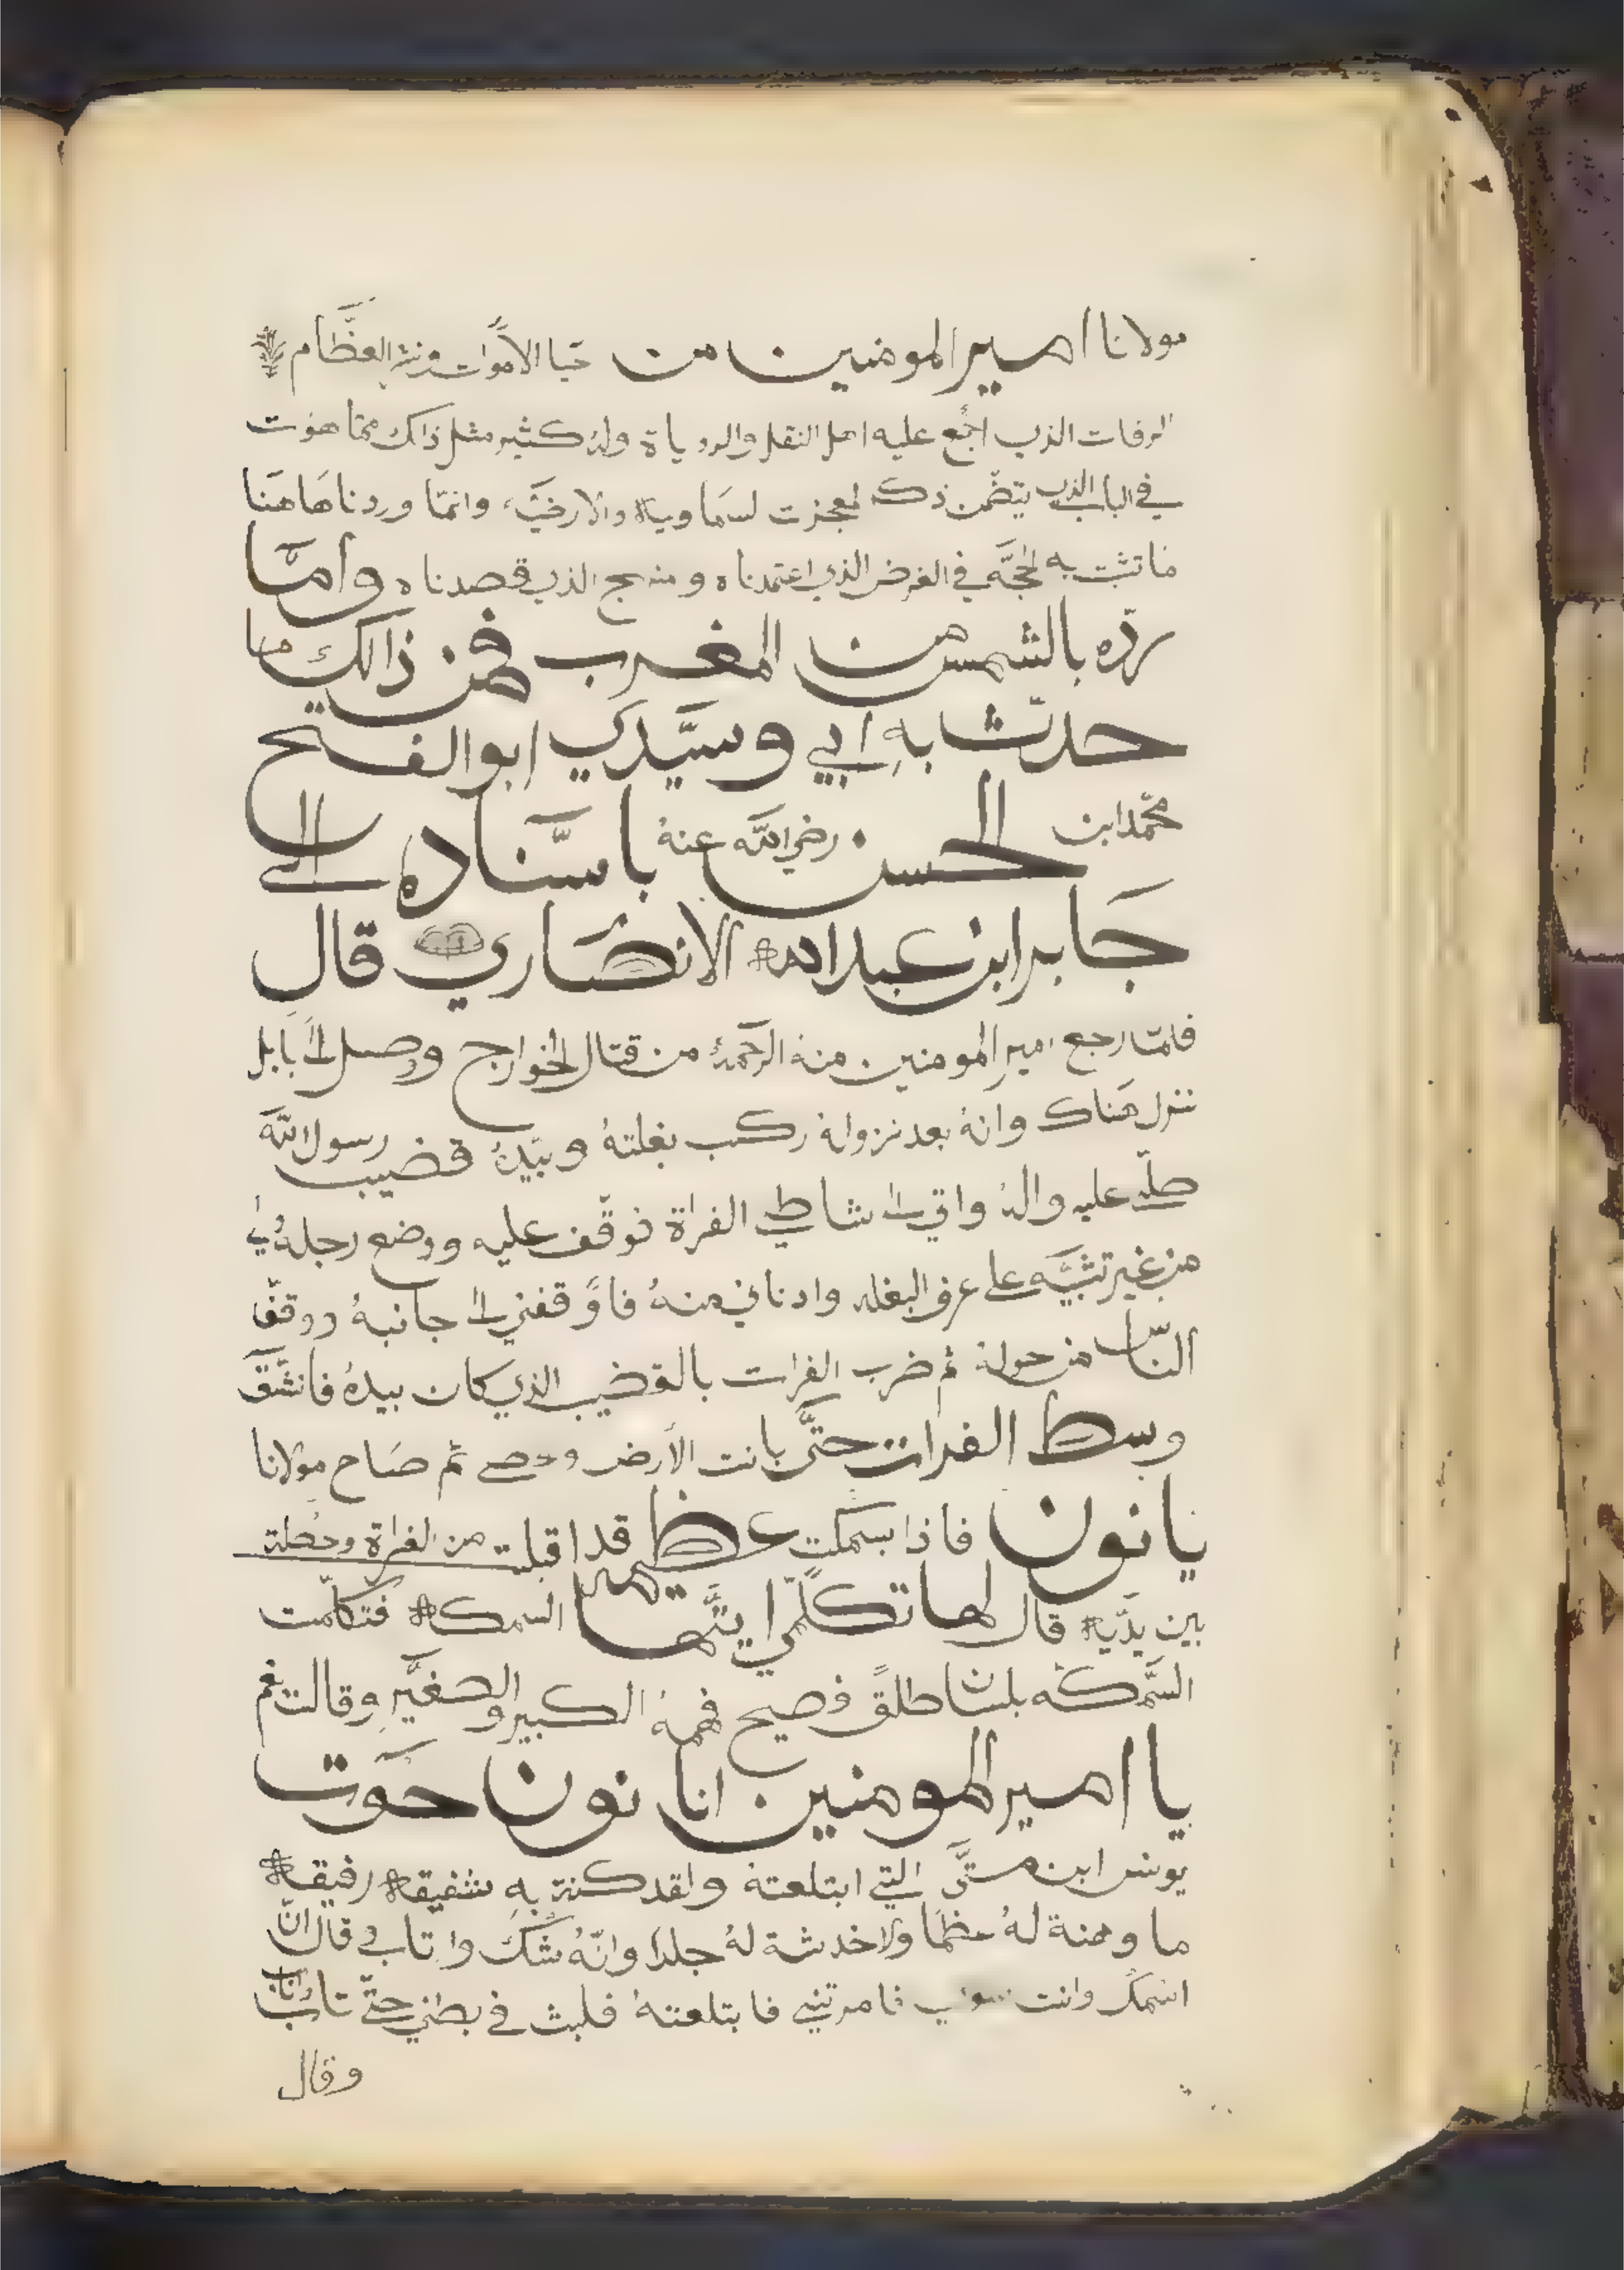 مولانا امير المومنين من حيا الأموات ونشر العظام
الرفات الذي اجمع عليه اهل النقل والرویاة وله كثير مثل ذالك مما هوت
في الباب الذي يتضمن ذكر لمعجزت لسماوية والارضية وانما وردنا هاهنا
ماتثبت به الحجة في الغرض الذي اعتمدناه ومنهج الذي قصدناه وأما
رده بالشمس من المغرب فمن ذالك ما
حدثنا به ابي وسيدي ابو الفتح
محمد ابن الحسن رضي الله عنه باسناده الى
جابر ابن عبدالله الانصاري قال
فلما رجع امير المومنين منه الرحمة من قتال الخوارج ووصل الى بابل
نزل هناك وانه بعد نزوله ركب بغلته وبيده قضيب رسول الله
صلى عليه واله واتى الى شاطي الفراة فوقف عليه ووضع رجله
من غير تثنيه على عرف البغله وادناني منه فاوقفني الى جانبه ووقف
الناس من حوله ثم ضرب الفرات بالقضيب الذي كان بيده فانشق
وسط الفرات حتى بانت الأرض وحصى ثم صاح مولانا
يانون فاذا بسمكت عظيمة قد اقبلت من الفراة وحصلة
بين يديه قال لها تكلمي ايتها السمكة فتكلمت
السمكه بلسان طلق فصيح فهمه الكبير والصغير وقالت نعم
يا امير المومنين انا نون حوت
يونس ابن متى التي ابتلعته ولقد كنت به شفيقة رفيقة
ما وهنة له عظما ولا خدشة له جلدا وانه شك وارتاب وقال ان
اسمك وانت فامرتني فابتلعته فلبث في بطني حتى تاب
وقال